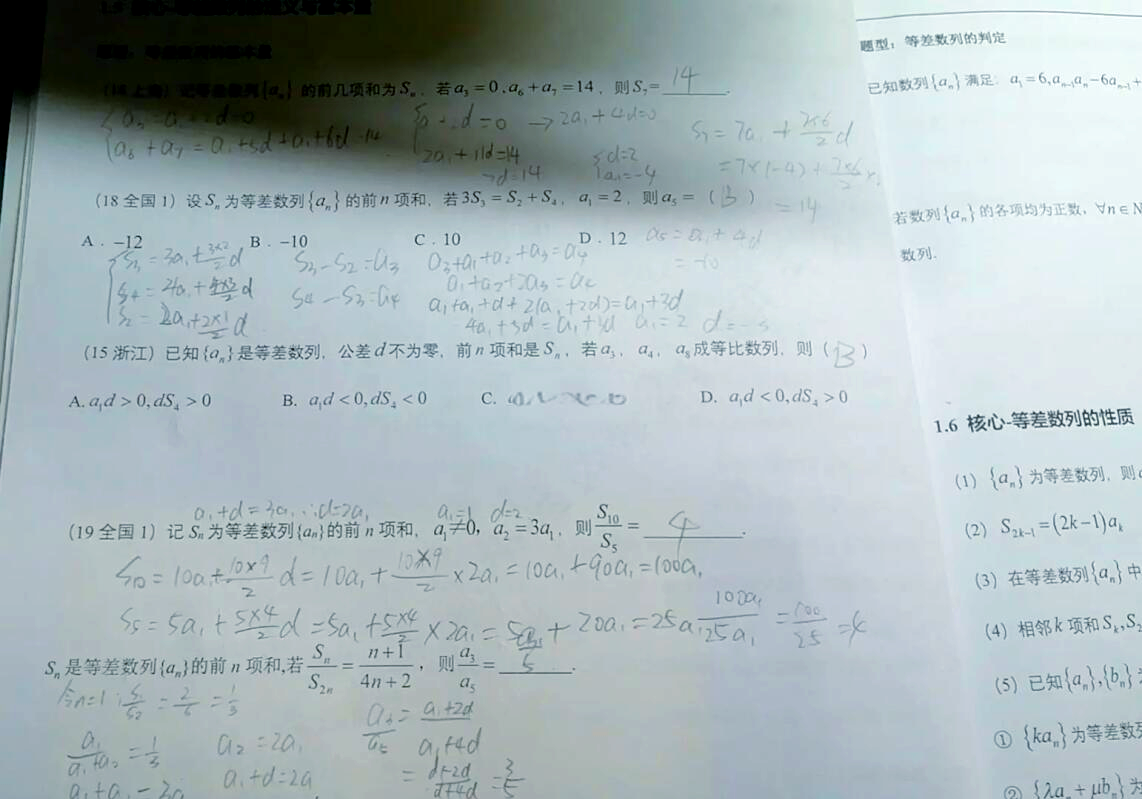 (18 上海) 记等差数列{aₙ} 的前几项和为 Sₙ, 若 a₃ = 0, a₆ + a₇ = 14, 则 S₇ = 14.
a₃ = a₁ + 2d = 0
a₆ + a₇ = a₁ + 5d + a₁ + 6d = 14
d = 0 → 2a₁ + 4d = 0
2a₁ + 11d = 14
7d = 14
d = 2
a₁ = -4
S₇ = 7a₁ + 7×6/2 d
= 7×(-4) + 7×6/2 ×
= 14
(18 全国 1) 设 Sₙ 为等差数列{aₙ} 的前 n 项和, 若 3S₃ = S₂ + S₄, a₁ = 2, 则 a₅ = ( B )
A. -12 B. -10 C. 10 D. 12
a₅ = a₁ + 4d
= -10
S₃ = 3a₁ + 3×2/2 d
S₄ = 4a₁ + 4×3/2 d
S₂ = 2a₁ + 2×1/2 d
S₃ - S₂ = a₃
S₄ - S₃ = a₄
a₃ + a₁ + a₂ + a₃ = a₄
a₁ + a₂ + 2a₃ = a₄
a₁ + a₁ + d + 2(a₁ + 2d) = a₁ + 3d
4a₁ + 5d = a₁ + 3d a₁ = 2 d = -3
(15 浙江) 已知{aₙ}是等差数列, 公差 d 不为零, 前 n 项和是 Sₙ, 若 a₃, a₄, a₈ 成等比数列, 则 ( B )
A. a₁d > 0, dS₄ > 0 B. a₁d < 0, dS₄ < 0 C. D. a₁d < 0, dS₄ > 0
a₁ + d = 3a₁ ∴ d = 2a₁ a₁ = 1 d = 2
(19 全国 1) 记 Sₙ 为等差数列{aₙ}的前 n 项和, a₁ ≠ 0, a₂ = 3a₁, 则 S₁₀/S₅ = 4.
S₁₀ = 10a₁ + 10×9/2 d = 10a₁ + 10×9/2 × 2a₁ = 10a₁ + 90a₁ = 100a₁
S₅ = 5a₁ + 5×4/2 d = 5a₁ + 5×4/2 × 2a₁ = 5a₁ + 20a₁ = 25a₁ 100a₁/25a₁ = 100/25 = 4
Sₙ 是等差数列{aₙ}的前 n 项和,若 Sₙ/S₂ₙ = n+1/4n+2, 则 a₃/a₅ = 3/5.
令n=1 ∴ S₁/S₂ = 2/6 = 1/3
a₁/a₁+a₂ = 1/3
a₁ + a₂ = 3a₁
a₂ = 2a₁
a₁ + d = 2a₁
a₃/a₅ = a₁+2d/a₁+4d
= d+2d/d+4d = 3/5
题型: 等差数列的判定
已知数列{aₙ} 满足: a₁ = 6, aₙ₋₁aₙ - 6aₙ₋₁ +
若数列{aₙ} 的各项均为正数, ∀n ∈ N
数列.
1.6 核心-等差数列的性质
(1) {aₙ} 为等差数列, 则
(2) S₂ₖ₋₁ = (2k-1)aₖ
(3) 在等差数列{aₙ} 中
(4) 相邻 k 项和 Sₖ, S₂
(5) 已知{aₙ},{bₙ}
① {kaₙ} 为等差数列
② {λaₙ + μbₙ} 为